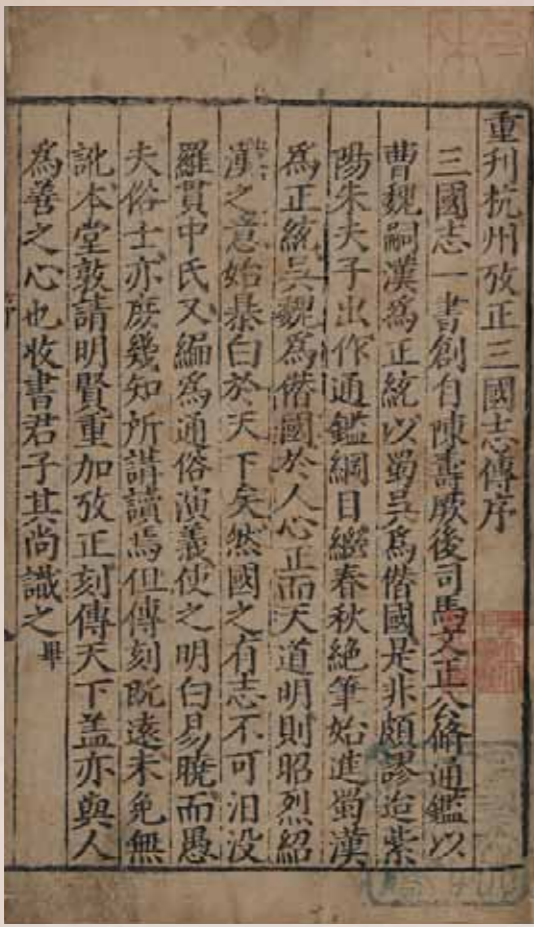 重刊杭州攷正三國志傳序
三國志一書創自陳壽厥後司馬文正公脩通鑑以
曹魏嗣漢爲正統以蜀吳爲僣國是非頗謬迨紫
陽朱夫子出作通鑑綱目繼春秋絶筆始進蜀漢
爲正統吳魏爲僣國於人心正而天道明則昭烈紹
漢之意始暴白於天下矣然國之有志不可汨没
羅貫中氏又編爲通俗演義使之明白易曉而愚
夫俗士亦庶幾知所講讀焉但傳刻旣遠未免無
訛本堂敦請明賢重加攷正刻傳天下盖亦與人
爲善之心也收書君子其尚識之